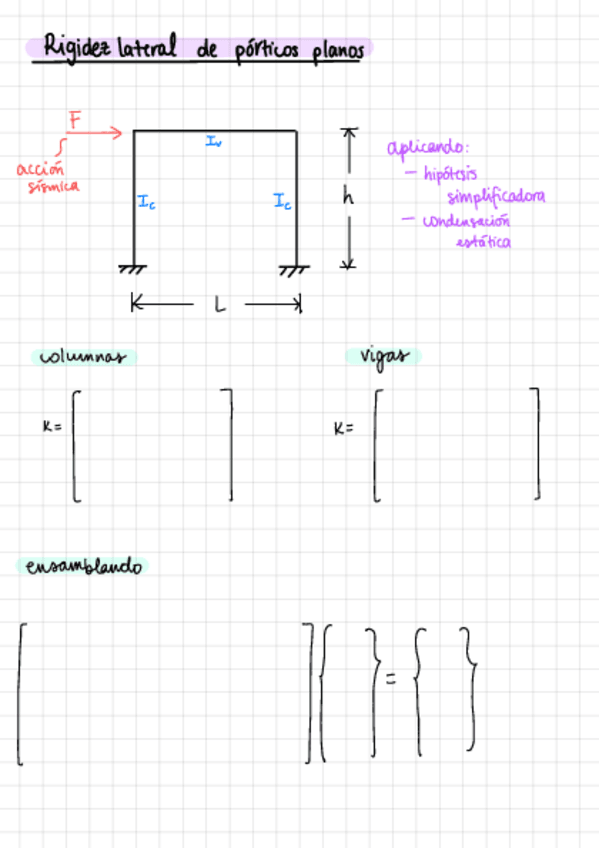 Rigidez lateral de pórticos planos
F
acción
sísmica
Iv
Ic
Ic
h
L
aplicando:
— hipótesis
simplificadora
— condensación
estática
columnas
vigas
K=
K=
ensamblando
=